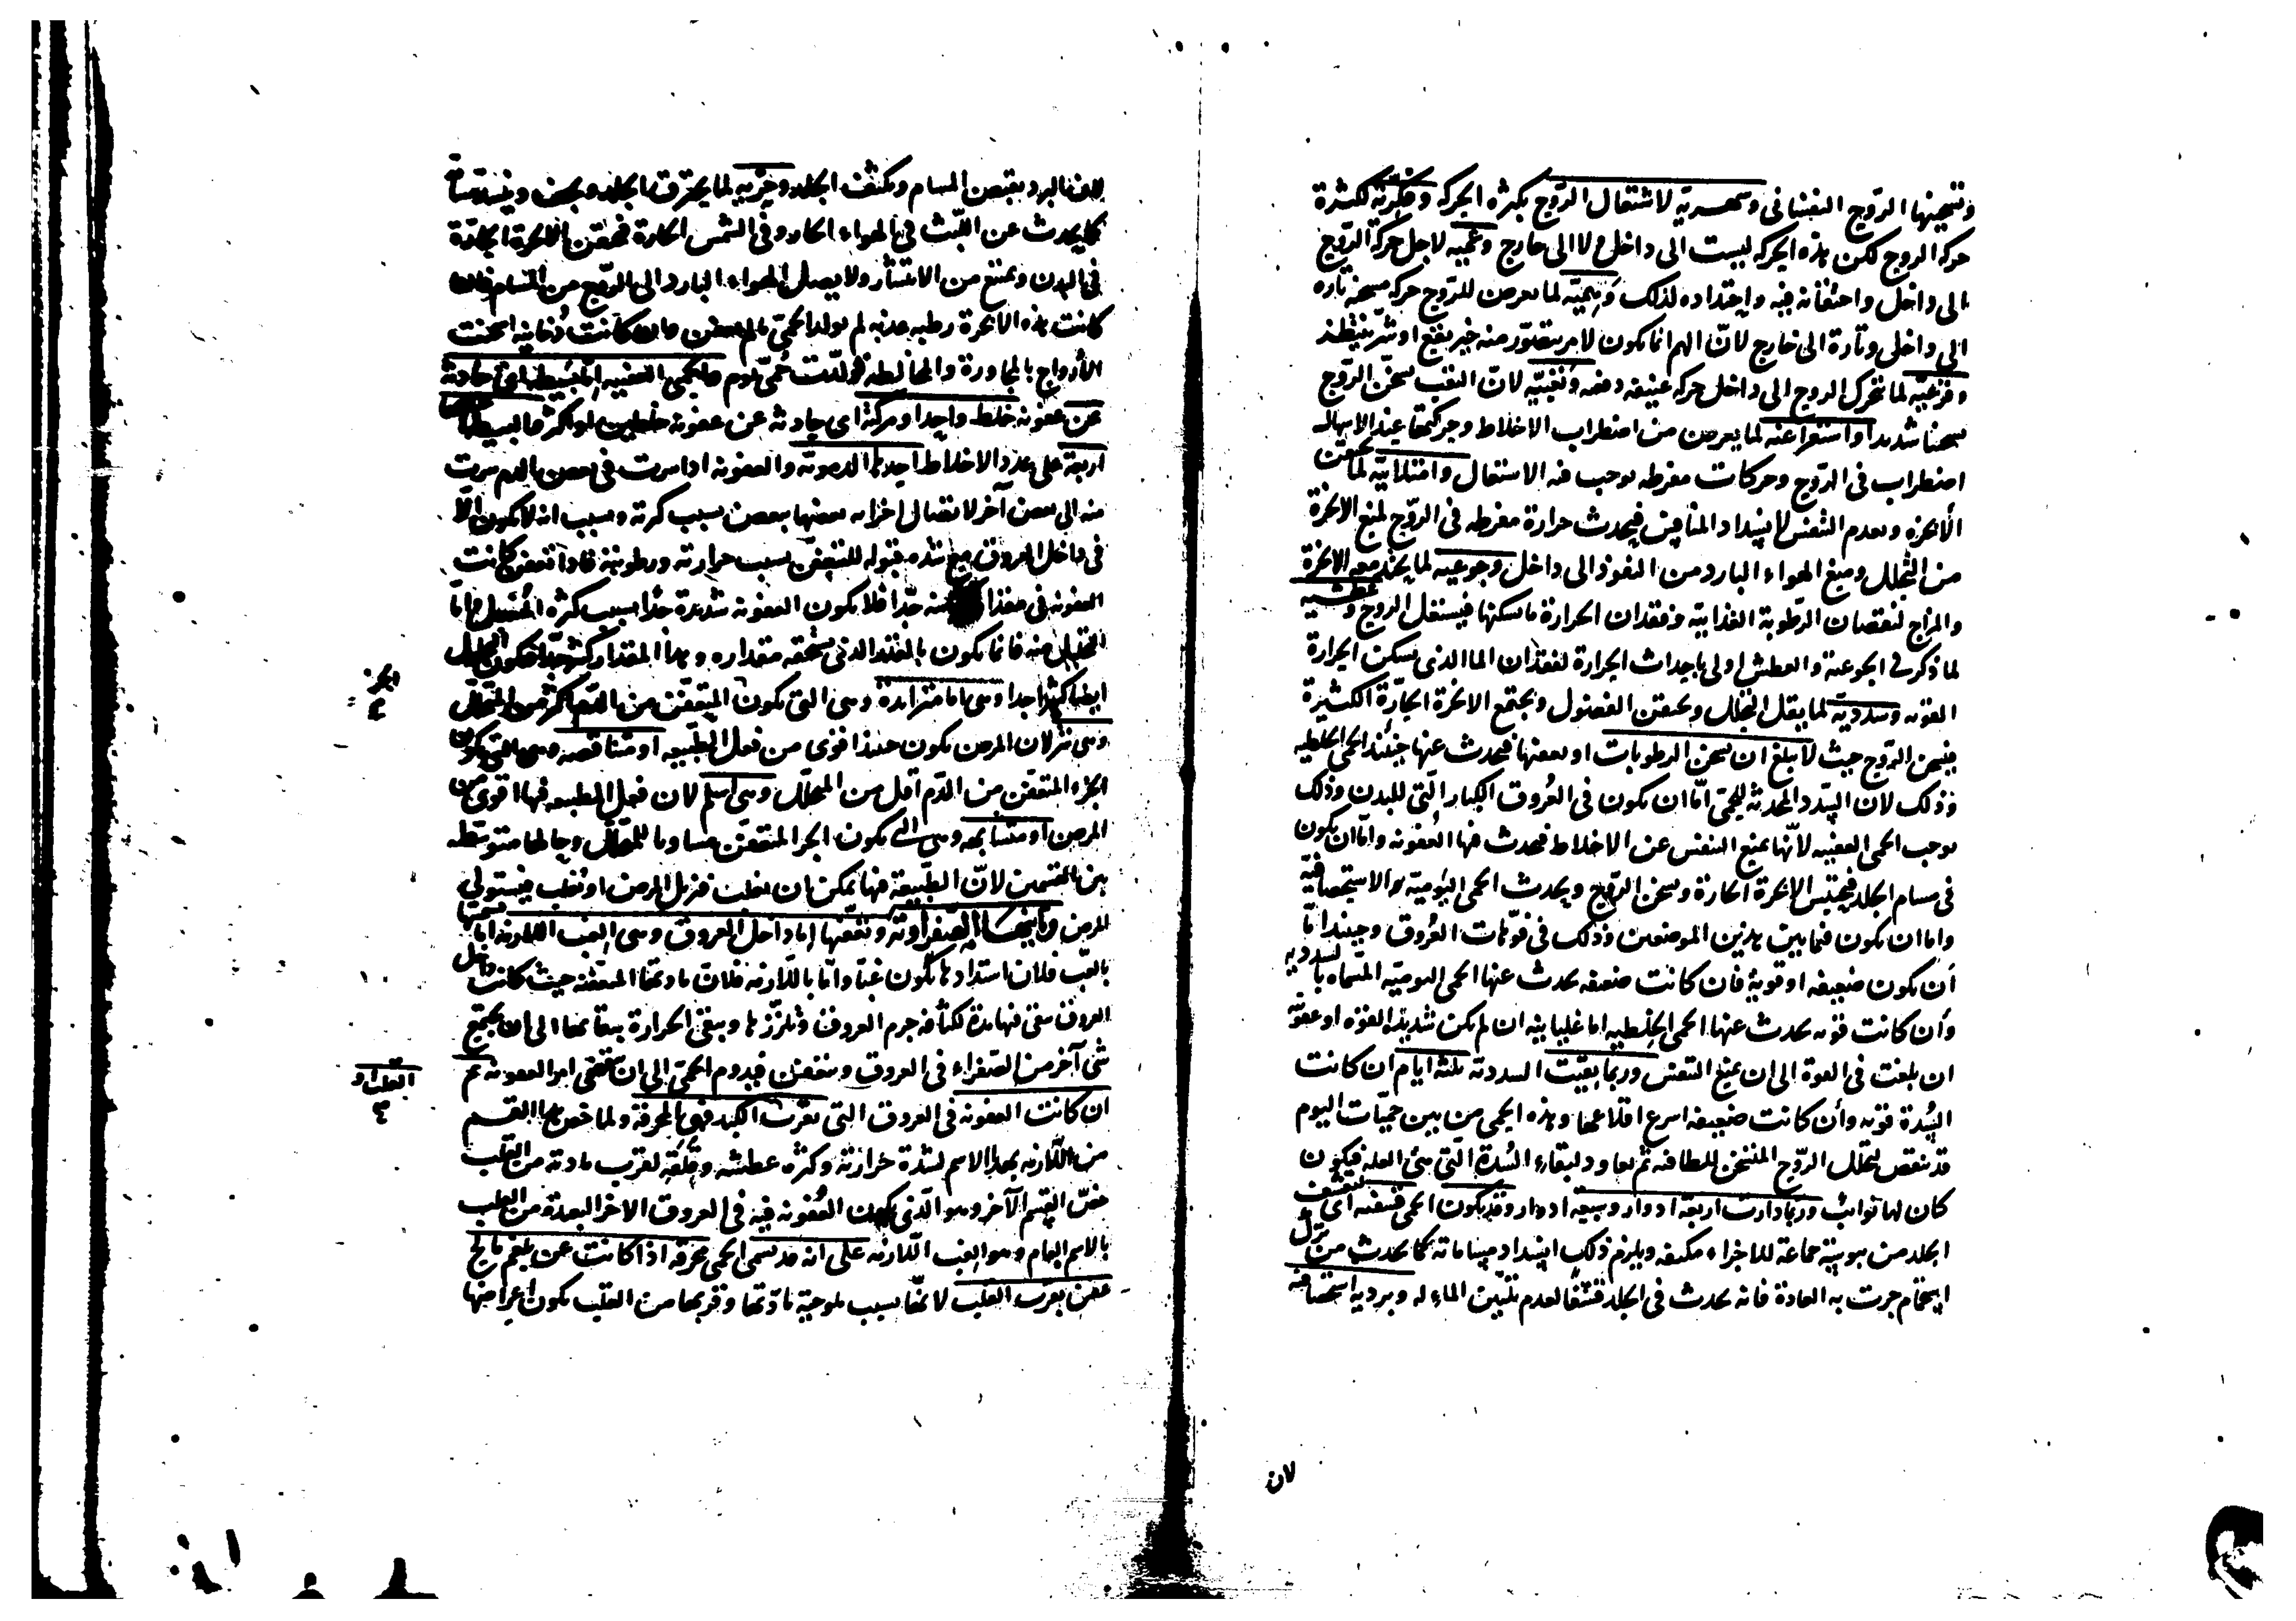 وتسخينها الروح النفسانى وسهرية لاشتعال الروح بكثرة الحركة وفكرية لكثرة
حركة الروح لكن هذه الحركة ليست الى داخل لا الى خارج وغمية لاجل حركة الروح
الى داخل واحتقانه فيه واحتداده لذلك وهمية لما يعرض للروح حركة مسخنة تارة
الى داخل وتارة الى خارج لان الهم انما يكون لامر يتصور منه خير يقع او شر ينتظر
وفزعية لما تحرك الروح الى داخل حركة عنيفة دفعة وتعبية لان التعب يسخن الروح
سخنا شديدا واستفراغية لما يعرض من اضطراب الاخلاط وحركتها عند الاسهال
اضطراب فى الروح وحركات مفرطة توجب فيه الاشتعال وامتلائية لما يحتقن
الابخرة وبعدم التنفس لانسداد المنافس فيحدث حرارة مفرطة فى الروح لمنع الابخرة
من التحلل ومنع الهواء البارد من النفوذ الى داخل وجوعية لما يحتد معه الابخرة
والمزاج لنقصان الرطوبة الغذائية وفقدان الحرارة ما يسكنها فيشتعل الروح وعطشية
لما ذكر فى الجوعية والعطش اولى باحداث الحرارة لفقدان الماء الذى يسكن الحرارة
القوية وسددية لما يقل التحلل ويحتقن الفضول ويجتمع الابخرة الحارة الكثيرة
فيسخن الروح حيث لا يبلغ ان يسخن الرطوبات او يعفنها فيحدث عنها حينئذ الحمى الخلطية
وذلك لان السدد المحدثة للحمى اما ان يكون فى العروق الكبار التى للبدن وذلك
يوجب الحمى العفنية لانها تمنع التنفس عن الاخلاط فيحدث فيها العفونة واما ان يكون
فى مسام الجلد فيحتبس الابخرة الحارة ويسخن الروح ويحدث الحمى اليومية الاستحصافية
واما ان يكون فيما بين هذين الموضعين وذلك فى فوهات العروق وحينئذ اما
ان يكون ضعيفة او قوية فان كانت ضعيفة يحدث عنها الحمى اليومية المسماة بالسددية
وان كانت قوية يحدث عنها الحمى الخلطية اما غليانية ان لم يكن شديد القوة او عفونة
ان بلغت فى القوة الى ان تمنع التنفس وربما بقيت السددية ثلثة ايام ان كانت
السدة قوية وان كانت ضعيفة اسرع اقلاعها وهذه الحمى من بين حميات اليوم
قد ينقص لتحلل الروح المتسخن للطافته ثم يعاود لبقاء السدة التى هى العلة فيكون
كان لها نوائب وربما دارت اربعة ادوار وسبعة ادوار وقد يكون الحمى قشفية اى لتقشف
الجلد من هيوئية جماعة للاجزاء مكثفة ويلزم ذلك انسداد مساماته كما يحدث من ترك
استحمام جرت به العادة فانه يحدث فى الجلد قشفا لعدم تليين الماء له وبردية استحصافية
لان
لان البرد يقبض المسام ويكثف الجلد وحرية لما يحترق الجلد ويجف وينسد مسامه
كما يحدث عن اللبث فى الهواء الحار وفى الشمس الحارة فيحتقن الابخرة الحادة
فى البدن ويمتنع من الانتشار ولا يصل الهواء البارد الى الروح من المسام فان
كانت هذه الابخرة رطبة عذبة لم يولد الحمى ما لم يعفن وان كانت دخانية اسخنت
الارواح بالمجاورة والمخالطة فولدت حمى يوم والحمى العفنية اما بسيطة اى حادثة
عن عفونة خلط واحد او مركبة اى حادثة عن عفونة خلطين او اكثر والبسيطة
اربعة على عدد الاخلاط احدها الدموية والعفونة اذا سرت فى بعض الدم سرت
منه الى بعض آخر لاتصال اجزائه بعضها ببعض بسبب كثرته وبسبب انه لا يكون الا
فى داخل العروق مع شدة قبوله للتعفن بسبب حرارته ورطوبته فاذا تعفن كانت
العفونة فى مقدار منه جدا فلا يكون العفونة شديدة جدا بسبب كثرة واما
التحلل منه فانما يكون بالمقدار الذى يستحقه مقداره وهذا المقدار كثير جدا فيكون التحلل
ايضا كثيرا جدا وهى اما متزايدة وهى التى يكون المتعفن من الدم اكثر من المتحلل
الجزء
وهى شر لان المرض يكون حينئذ اقوى من فعل الطبيعة او متناقصة وهى التى يكون
الجزء المتعفن من الدم اقل من المتحلل وهى اسلم لان فعل الطبيعة فيها اقوى من
المرض او متشابهة وهى التى يكون الجزء المتعفن مساويا للمتحلل وحالها متوسطة
بين القسمين لان الطبيعة فيها يمكن ان تغلب فتزيل المرض او تغلب فيستولى
المرض وثانيها الصفراوية وتعفنها اما داخل العروق وهى الغب اللازمة اما تسميتها
بالغب فلان اشتدادها يكون غبا واما باللازمة فلان مادتها المتعفنة حيث كانت داخل
العروق تبقى فيها مدة لكثافة جرم العروق وتلززها ويبقى الحرارة ببقائها الى ان يجتمع
شىء آخر من الصفراء فى العروق ويتعفن فيدوم الحمى الى ان تنقضى امر العفونة ثم
ان كانت العفونة فى العروق التى بقرب الكبد فهى المحرقة ولما خص هذا القسم
القلب او
من اللازمة بهذا الاسم لشدة حرارته وكثرة عطشه وقلقه لقرب مادته من القلب
خص القسم الآخر وهو الذى يكون العفونة فيه فى العروق الاخر البعيدة من القلب
بالاسم العام وهو الغب اللازمة على انه قد يسمى الحمى محرقة اذا كانت عن بلغم مالح
عفن بقرب القلب لانها بسبب ملوحية مادتها وقربها من القلب يكون اعراضها